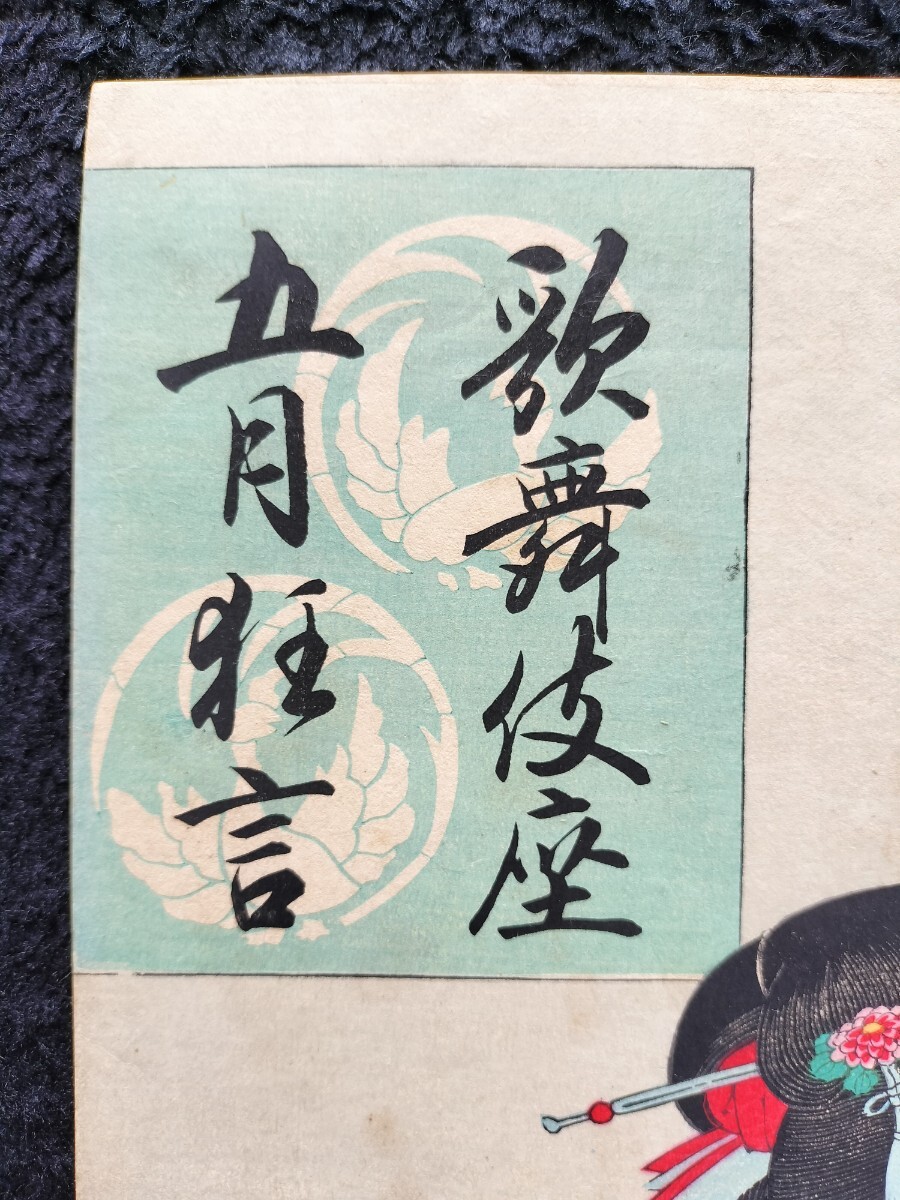 歌舞伎座
五月狂言